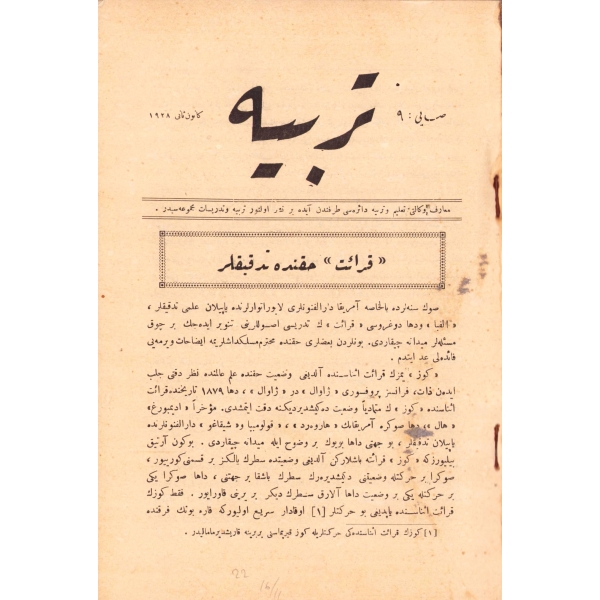 صایی : ٩
تربیه
كانون ثانی ١٩٢٨
معارف وكالتی تعلیم و تربیه دائره‌سی طرفندن آیده بر نشر اولنور تربیه و تدریسات مجموعه‌سیدر .
« قرائت » حقنده تدقیقلر
صوك سنه‌لرده بالخاصه آمریقا دارالفنونلری لابوراتوارلرنده یاپیلان علمی تدقیقلر ،
« الفبا » و دها دوغروسی « قرائت » ك تدریسی اصوللرینی تنویر ایده‌جك بر چوق
مسئله‌لر میدانه چیقاردی . بونلردن بعضلری حقنده محترم مسلكداشلریمه ایضاحات ویرمه‌یی
فائده‌لی عد ایتدم .
« كوز » یمزك قرائت اثناسنده آلدینی وضعیت حقنده علم عالمنده نظر دقتی جلب
ایدن ذات، فرانسز پروفسوری « ژاوال » در « ژاوال » ، دها ١٨٧٩ تاریخنده قرائت
اثناسنده « كوز » ك متمادیاً وضعیت ده‌كیشدیردیكنه دقت ایتمشدی. مؤخراً « ادیمبورغ »
« هال » ، دها صوكره آمریقانك « هارو‌ه‌رد » ، « قولومبیا » و « شیقاغو » دارالفنونلرنده
یاپیلان تدقیقلر ، بو جهتی داها بویوك بر وضوح ایله میدانه چیقاردی . بوكون آرتیق
بیلیورز كه « كوز » قرائته باشلاركن آلدینی وضعیتده سطرك یالكز بر قسمنی كورییور ،
صوكرا بر حركتله وضعیتنی دكیشدیره‌رك سطرك باشقا بر جهتنی ، داها صوكرا یكی
بر حركتله یكی بر وضعیت داها آلارق سطرك دیكر بر یرینی قاورایور . فقط كوزك
قرائت اثناسنده یاپدینی بو حركتلر [١] اوقادار سریع اولیور كه قاره بونك فرقنده
[١] كوزك قرائت اثناسنده‌كی حركتلریله كوز قیرپماسی بربرینه قاریشدیرمامالیدر .
22
16/11